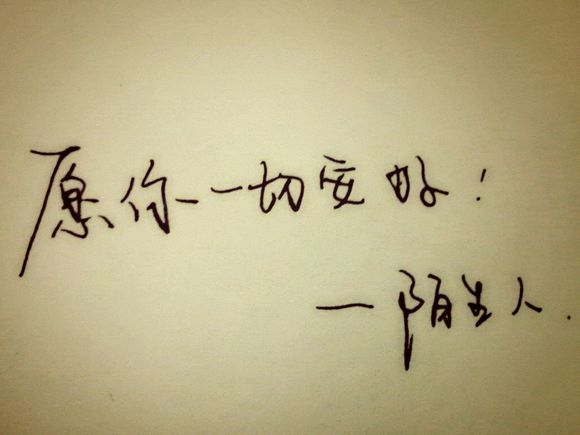 愿你一切安好！
—陌生人.